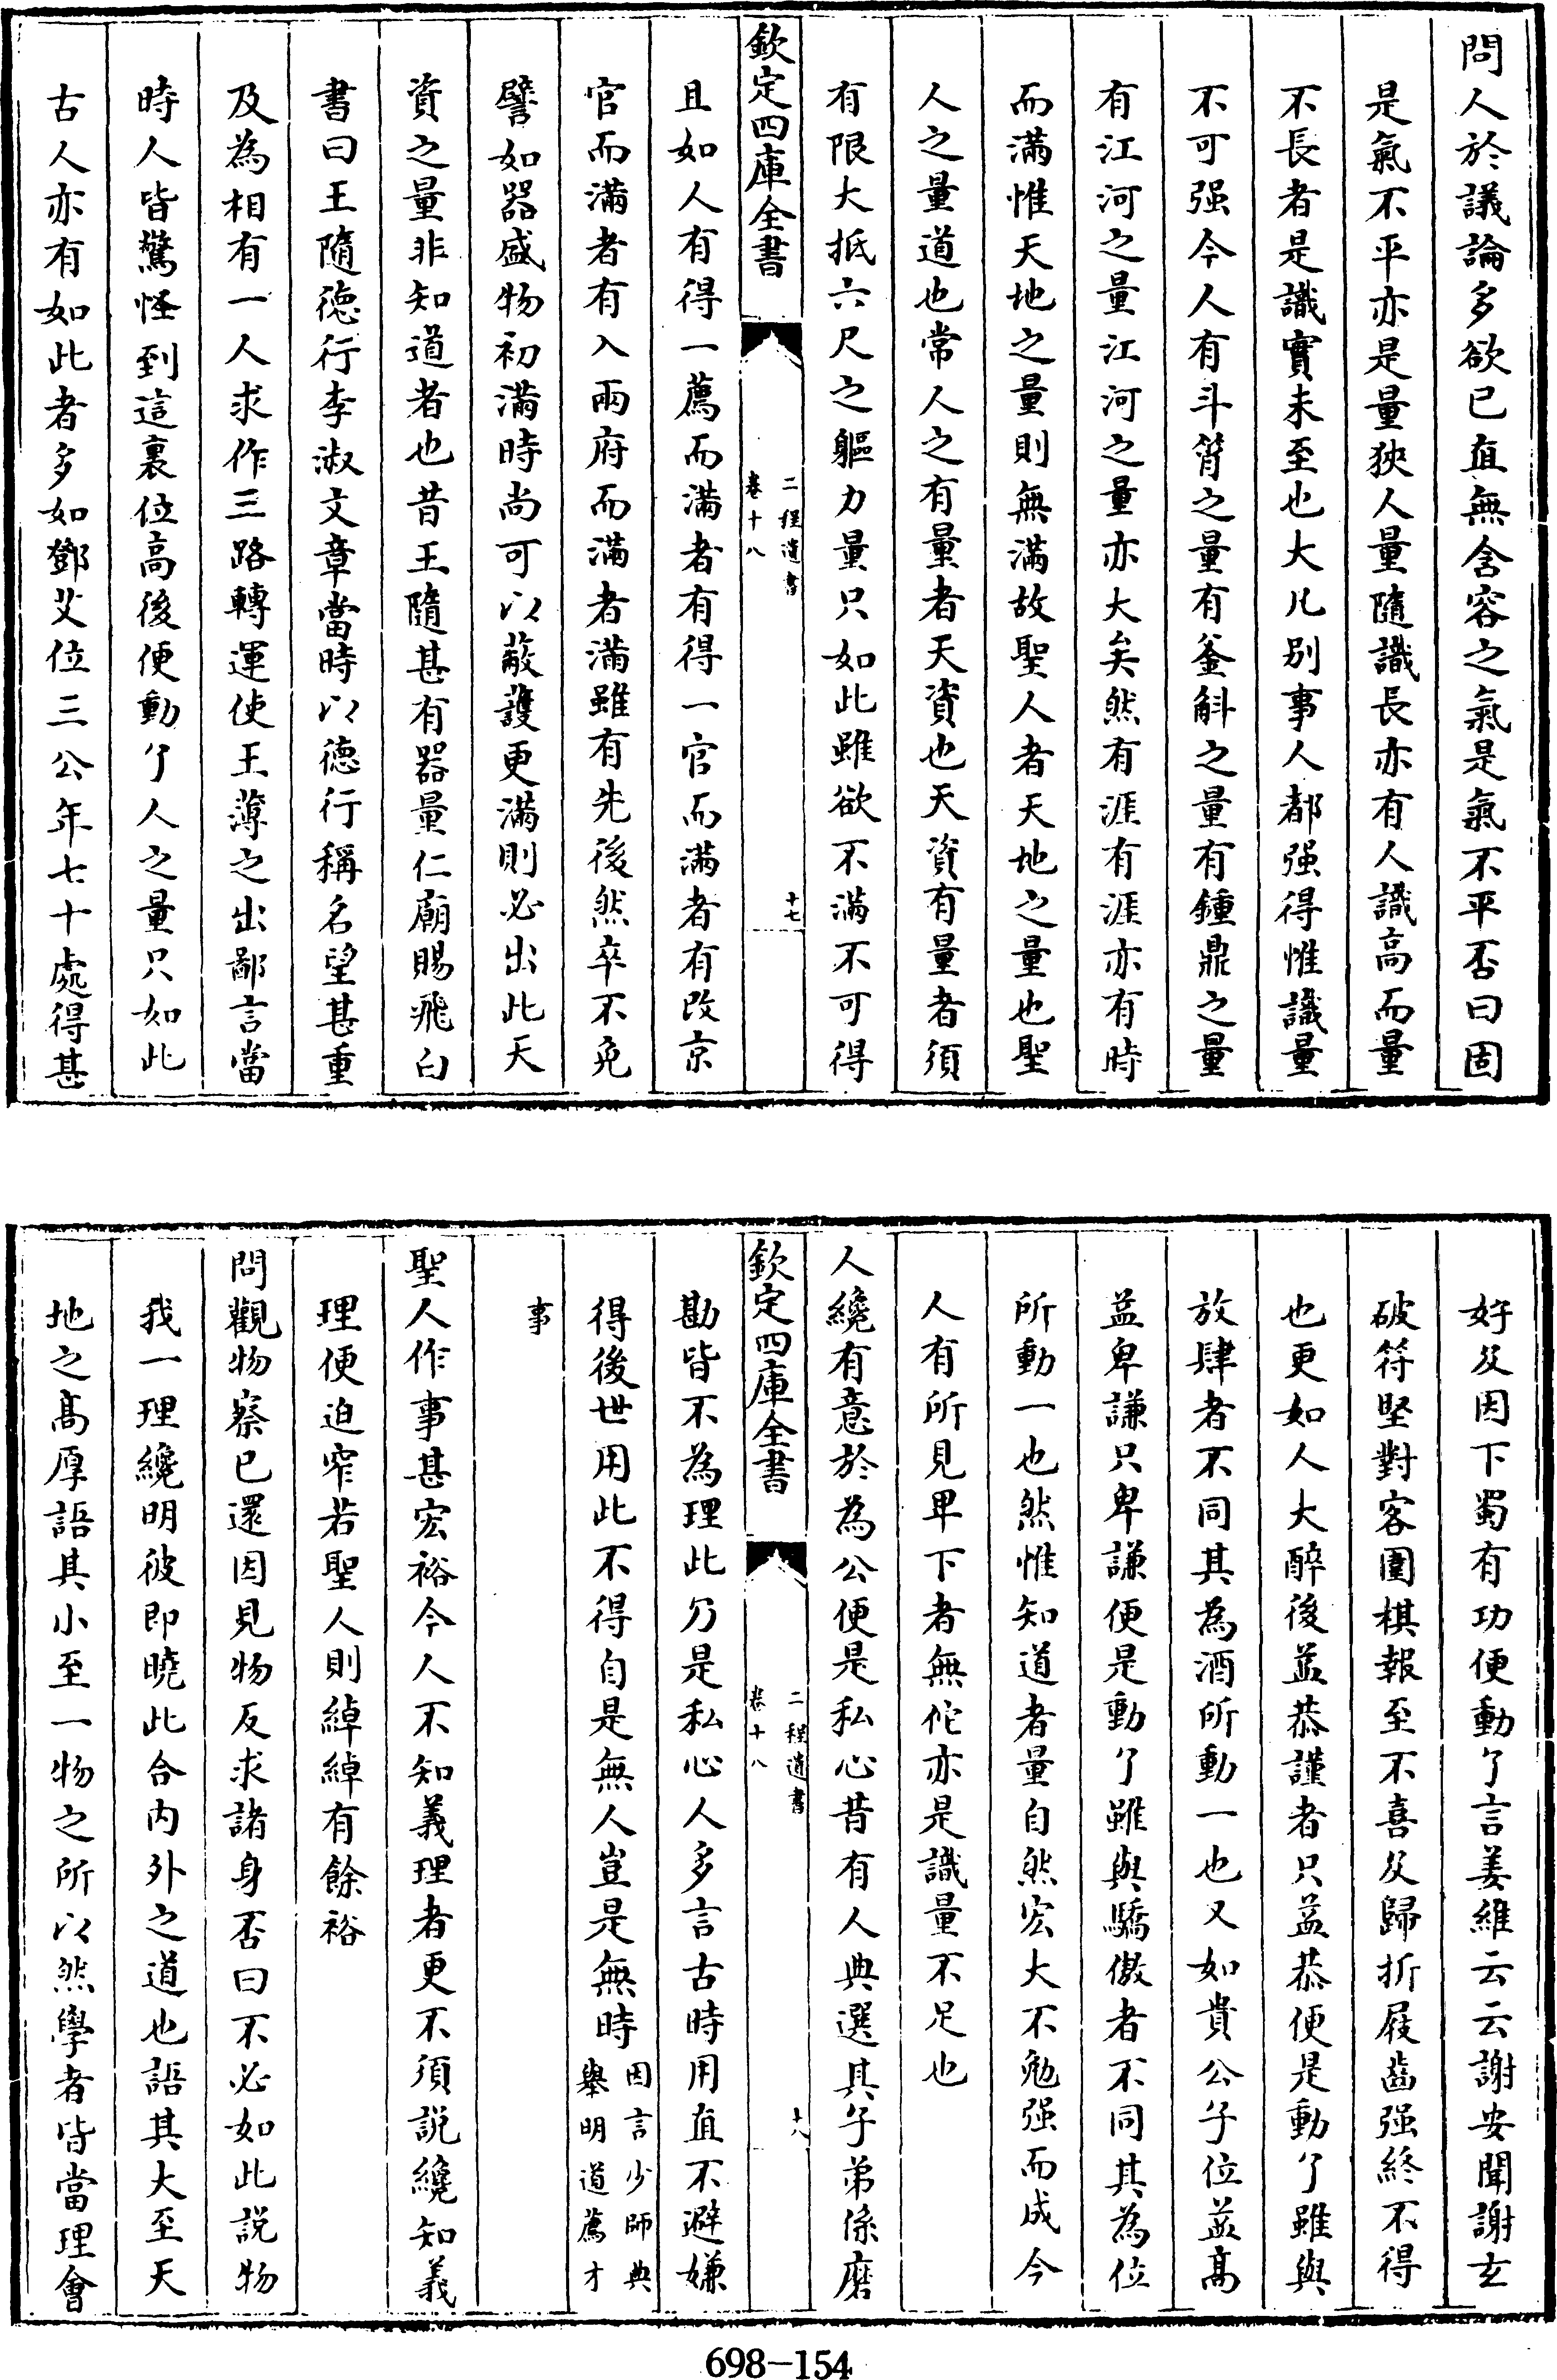 問人於議論多欲已直無含容之氣是氣不平否曰固
是氣不平亦是量狹人量隨識長亦有人識高而量
不長者是識實未至也大凡别事人都强得惟識量
不可强今人有斗筲之量有釜斛之量有鍾鼎之量
有江河之量江河之量亦大矣然有涯有涯亦有時
而滿惟天地之量則無滿故聖人者天地之量也聖
人之量道也常人之有量者天資也天資有量者須
有限大抵六尺之軀力量只如此雖欲不滿不可得
欽定四庫全書
二程遺書
卷十八
十七
且如人有得一薦而滿者有得一官而滿者有改京
官而滿者有入兩府而滿者滿雖有先後然卒不免
譬如器盛物初滿時尚可以蔽護更滿則必出此天
資之量非知道者也昔王隨甚有器量仁廟賜飛白
書曰王隨德行李淑文章當時以德行稱名望甚重
及為相有一人求作三路轉運使王薄之出鄙言當
時人皆驚怪到這裏位高後便動了人之量只如此
古人亦有如此者多如鄧艾位三公年七十處得甚
好及因下蜀有功便動了言姜維云云謝安聞謝玄
破符堅對客圍棋報至不喜及歸折屐齒强終不得
也更如人大醉後益恭謹者只益恭便是動了雖與
放肆者不同其為酒所動一也又如貴公子位益髙
益卑謙只卑謙便是動了雖與驕傲者不同其為位
所動一也然惟知道者量自然宏大不勉强而成今
人有所見卑下者無佗亦是識量不足也
人纔有意於為公便是私心昔有人典選其子弟係磨
欽定四庫全書
二程遺書
卷十八
十八
勘皆不為理此乃是私心人多言古時用直不避嫌
得後世用此不得自是無人豈是無時因言少師典
舉明道薦才
事
聖人作事甚宏裕今人不知義理者更不須説纔知義
理便迫窄若聖人則綽綽有餘裕
問觀物察已還因見物反求諸身否曰不必如此説物
我一理纔明彼即曉此合内外之道也語其大至天
地之髙厚語其小至一物之所以然學者皆當理會
698-154